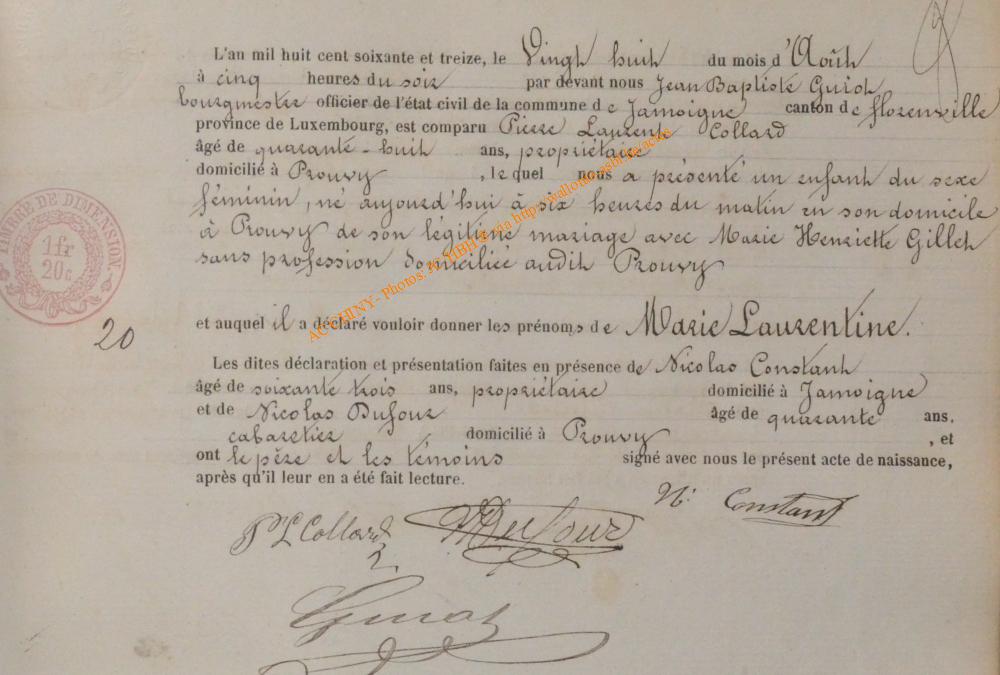 L'an mil huit cent soixante et treize, le Vingt huit du mois d'Août
à cinq heures du soir par devant nous Jean Baptiste Guiot
bourgmestre officier de l'état civil de la commune de Jamoigne canton de florenville
province de Luxembourg, est comparu Pierre Laurent Collard
âgé de quarante-huit ans, propriétaire
domicilié à Prouvy, lequel nous a présenté un enfant du sexe
féminin, né aujourd'hui à six heures du matin en son domicile
à Prouvy de son légitime mariage avec Marie Henriette Gillet
sans profession domiciliée audit Prouvy
TIMBRE DE DIMENSION.
1fr
20c.
20
et auquel il a déclaré vouloir donner les prénoms de Marie Laurentine.
Les dites déclaration et présentation faites en présence de Nicolas Constant
âgé de soixante trois ans, propriétaire domicilié à Jamoigne
et de Nicolas Dufour âgé de quarante ans,
cabaretier domicilié à Prouvy, et
ont le père et les témoins signé avec nous le présent acte de naissance,
après qu'il leur en a été fait lecture.
N. Constant
P L Collard
N Dufour
Guiot